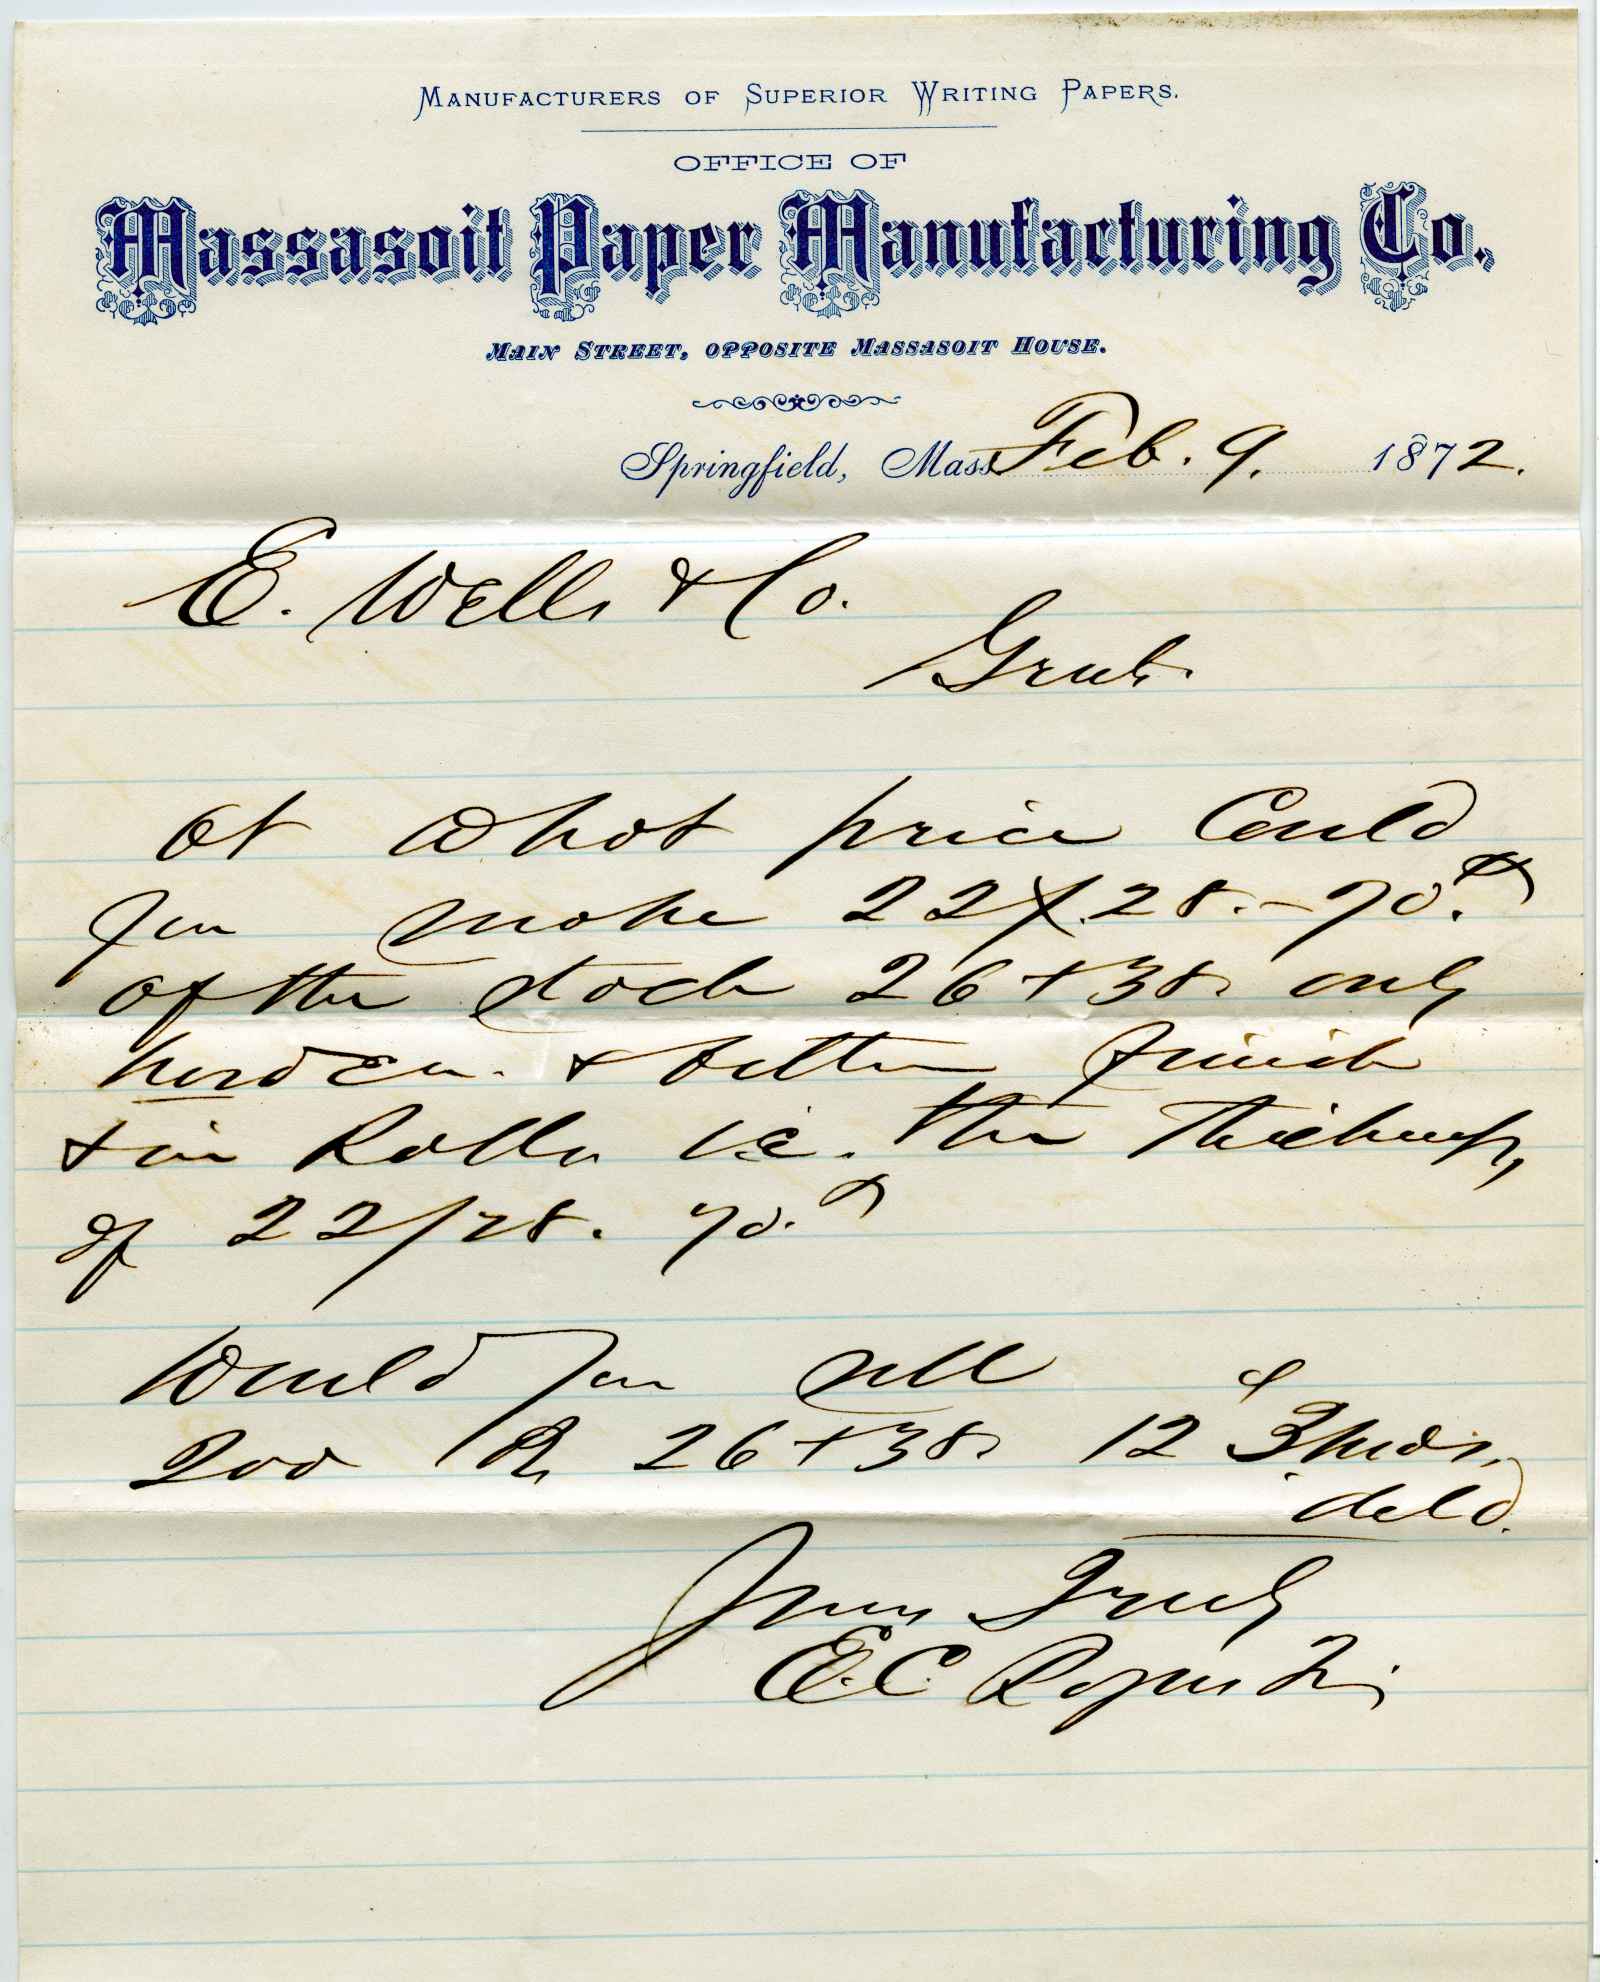 MANUFACTURERS OF SUPERIOR WRITING PAPERS.
OFFICE OF
Massasoit Paper Manufacturing Co.,
MAIN STREET, OPPOSITE MASSASOIT HOUSE.
Springfield, Mass Feb. 9. 1872.
E. Wells & Co.
Gents.
At What price Could
you make 22 X 28. - 70.#
of the stock 26 + 38. only
harder. & better finish
+ in Rolls i.e. the thickness,
of 22/28. 70.#
Would you sell
200 Rs 26 + 38. 12 ¢ 3 mos.
deld.
Yours Truly
E.C. Rogers Tr.